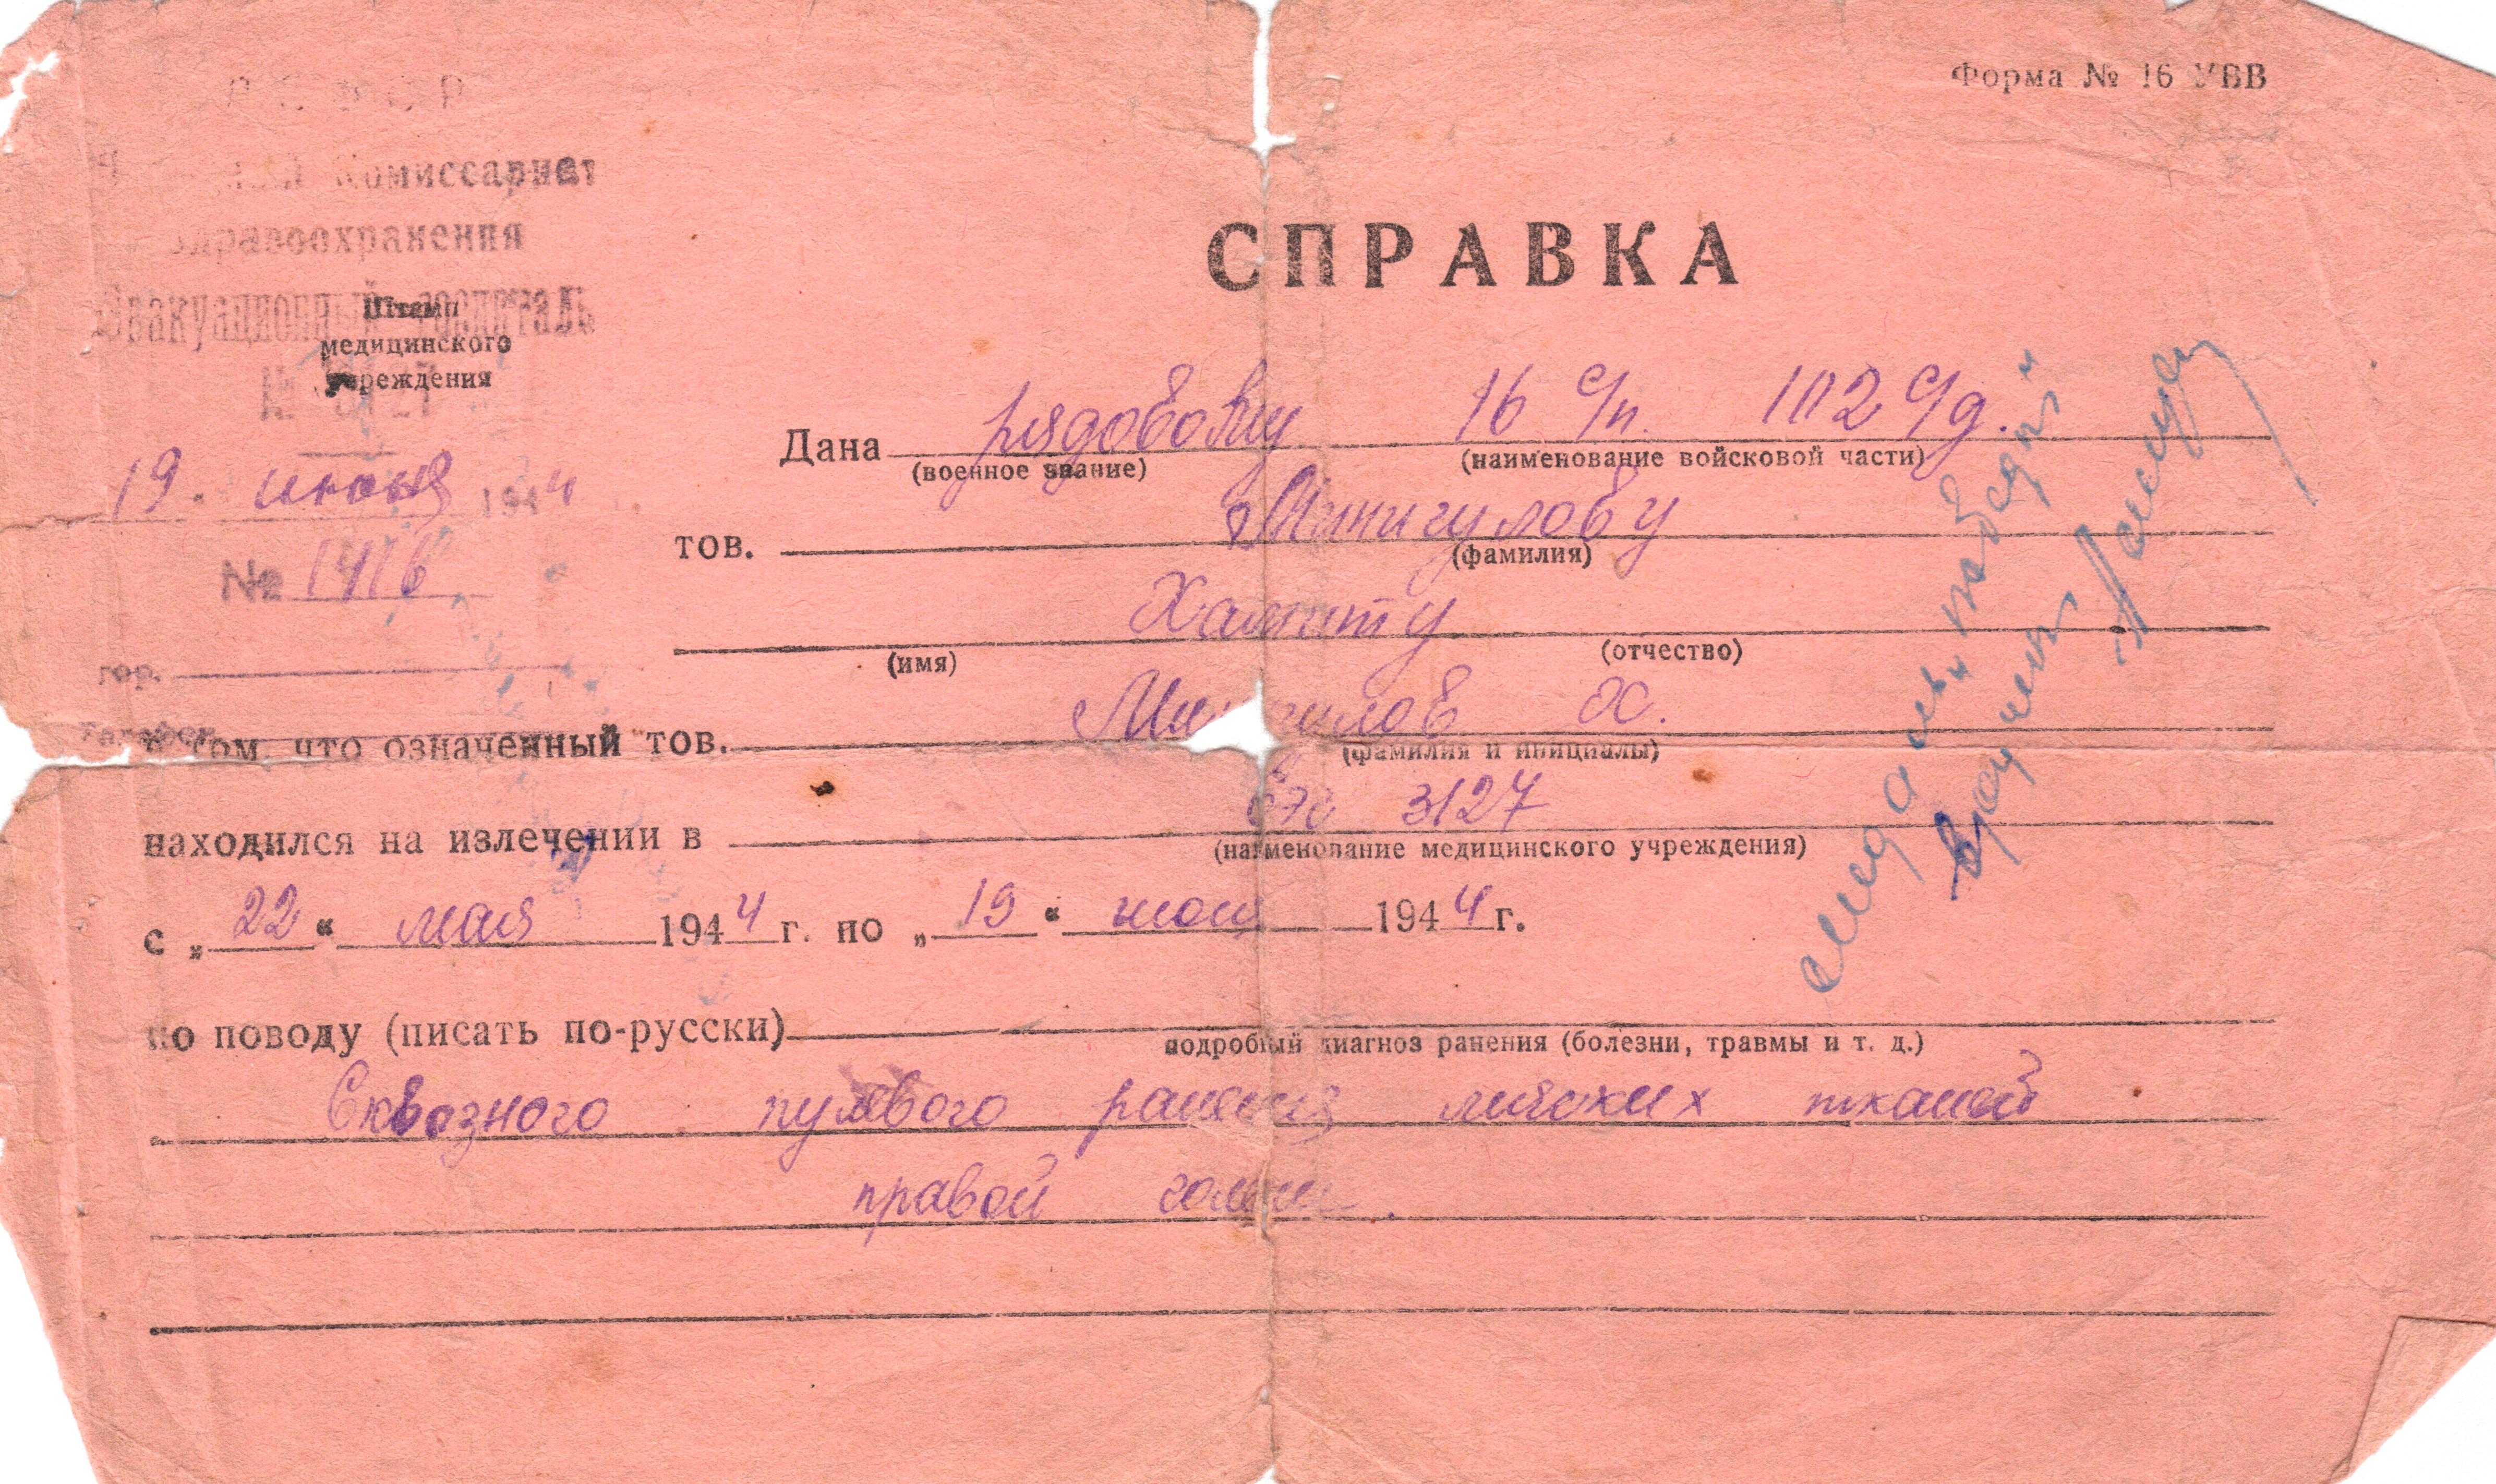 Форма № 16 УВВ
Р С Ф С Р
Комиссариат
Здравоохранения
Эвакуационный госпиталь
№ 3127
Штамп
медицинского
учреждения
19. июня 1944
№ 1416
гор.
Телефон
СПРАВКА
Дана рядовому 16 с/п. 102 с/д.
(военное звание) (наименование войсковой части)
тов. Минигулову
(фамилия)
Хамиту
(имя) (отчество)
о том, что означенный тов. Минигулов Х.
(фамилия и инициалы)
находился на излечении в 3127
(наименование медицинского учреждения)
с „22“ мая 1944 г. по „19“ июня 1944 г.
по поводу (писать по-русски)
подробный диагноз ранения (болезни, травмы и т. д.)
Сквозного пулевого ранения мягких тканей
правой голени.
медаль „победы“
вручена